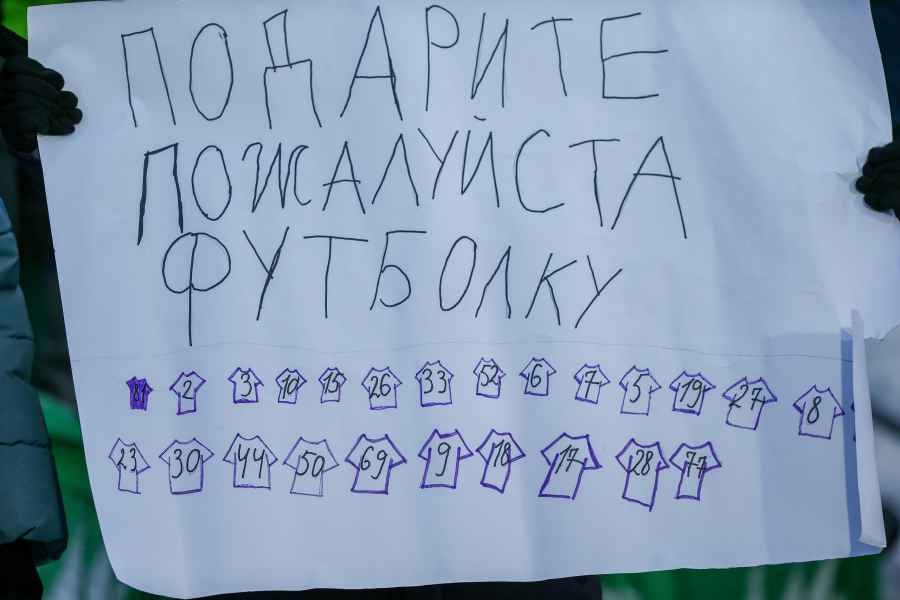 ПОДАРИТЕ
ПОЖАЛУЙСТА
ФУТБОЛКУ
81 2 3 10 15 26 33 52 6 7 5 19 27 8
23 30 44 50 69 9 18 17 28 77